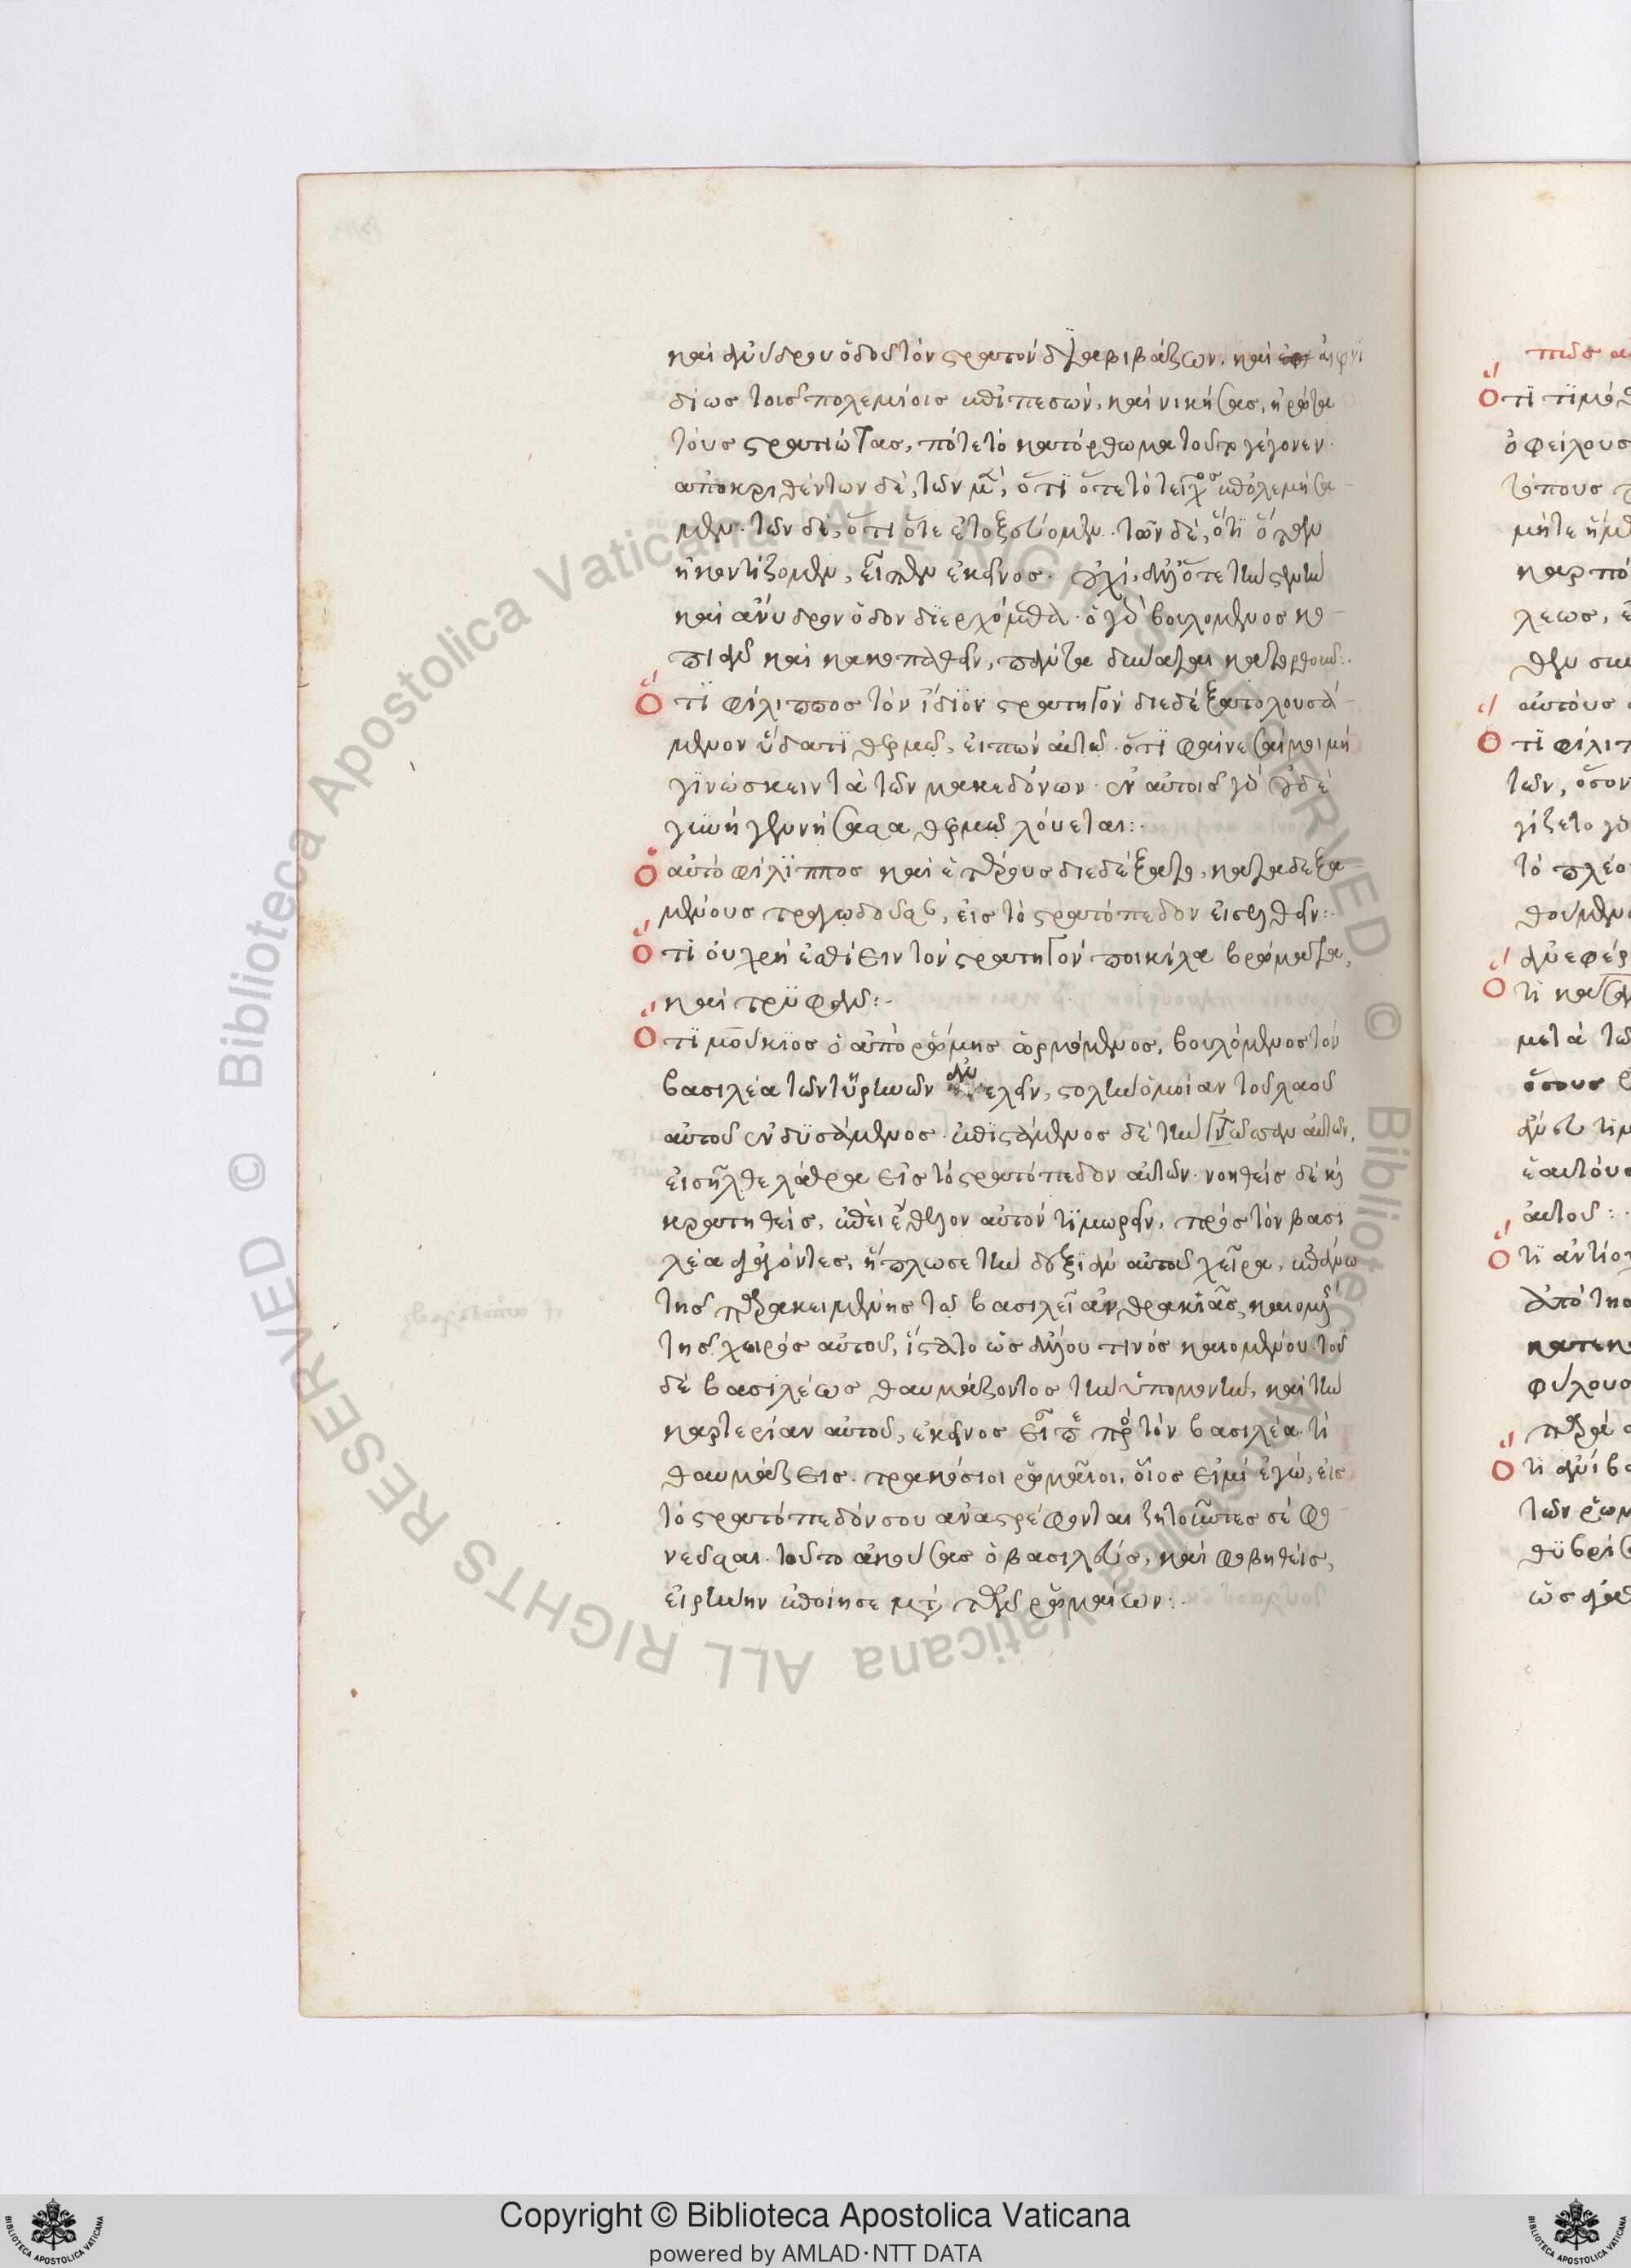 καὶ ἀνύδρου ὁδοῦ τὸν στρατὸν διαβιβάζων. καὶ αἰφνι
δίως τοῖς πολεμίοις ἐπιπεσών, καὶ νικήσας, ἠρώτα
τοὺς στρατιώτας, πότε τὸ κατόρθωμα τοῦτο γέγονεν.
ἀποκριθέντων δὲ, τῶν μὲν, ὅτι ὅτε τὸ τεῖχος ἐπολεμήσα-
μεν. τῶν δὲ, ὅτι ὅτε ἐτοξεύομεν. τῶν δὲ, ὅτι ὅταν
ἠκοντίζομεν, εἶπεν ἐκεῖνος. οὐχί, ἀλλ' ὅτε τὴν στενὴν
καὶ ἄνυδρον ὁδὸν διερχόμεθα. ὁ γὰρ βουλόμενος κο-
πιᾶν καὶ κακοπαθεῖν, πάντα δύναται κατορθοῦν:.
Ὅτι φίλιππος τὸν ἴδιον στρατηγὸν διεδέξατο λουσά-
μενον ὕδατι θερμῷ, εἰπὼν αὐτῷ. ὅτι φαίνεσαί μοι μὴ
γινώσκειν τὰ τῶν μακεδόνων. ἐν αὐτοῖς γὰρ οὐδὲ
γυνὴ γεννήσασα θερμῷ λούεται:.
Ὁ αὐτὸ φίλιππος καὶ ἑτέρους διεδέξατο, καταδεξα
μένους τραγῳδούσας, εἰς τὸ στρατόπεδον εἰσελθεῖν:.
Ὅτι οὐ χρὴ ἐσθίειν τὸν στρατηγὸν ποικίλα βρώματα,
καὶ τρυφᾶν:.
Ὅτι μούκιος ὁ ἀπὸ ῥώμης ὁρμώμενος, βουλόμενος τὸν
βασιλέα τῶν τυρινῶν ἀνελεῖν, στολὴν ὁμοίαν τοῦ λαοῦ
αὐτοῦ ἐνδυσάμενος. ἐπιστάμενος δὲ τὴν γλῶσσαν αὐτῶν,
εἰσῆλθε λάθρα εἰς τὸ στρατόπεδον αὐτῶν. νοηθεὶς δὲ καὶ
κρατηθείς, ἐπεὶ ἔθελον αὐτὸν τιμωρεῖν, πρὸς τὸν βασι
λέα ἀγαγόντες, ἥπλωσε τὴν δεξιὰν αὐτοῦ χεῖρα, ἐπάνω
τῆς παρακειμένης τῷ βασιλεῖ ἀνθρακιᾶς, καιομένης
τῆς χειρὸς αὐτοῦ, ἵστατο ὡς ἄλλου τινὸς καιομένου. τοῦ
δὲ βασιλέως θαυμάζοντος τὴν ὑπομονὴν, καὶ τὴν
καρτερίαν αὐτοῦ, ἐκεῖνος εἶπε πρὸς τὸν βασιλέα. τί
θαυμάζεις. τρακόσιοι ῥωμαῖοι, οἷος εἰμὶ ἐγώ, εἰς
τὸ στρατόπεδόν σου ἀναστρέφονται ζητοῦντες σὲ φο-
νεῦσαι. τοῦτο ἀκούσας ὁ βασιλεύς, καὶ φοβηθείς,
εἰρήνην ἐποίησε μετὰ τῶν ῥωμαίων:.
Copyright © Biblioteca Apostolica Vaticana
powered by AMLAD·NTT DATA